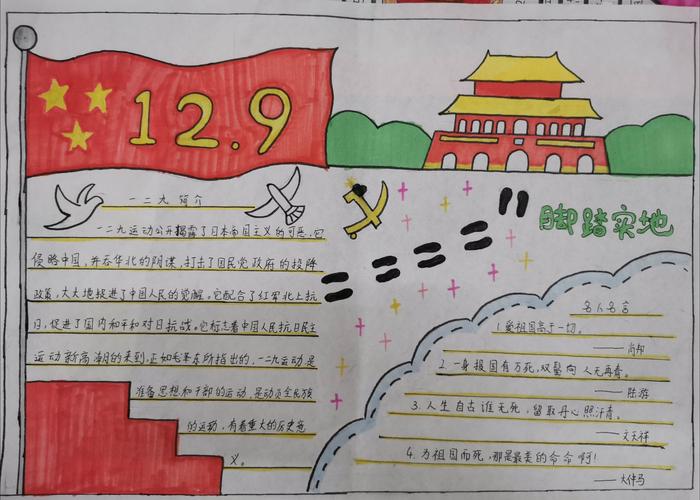 12.9
一二九 简介
一二九运动公开揭露了日本帝国主义的可恶,它
侵略中国,并吞华北的阴谋,打击了国民党政府的投降
政策,大大地投进了中国人民的觉醒。它配合了红军北上抗
日,促进了国内和平和对日抗战。它标志着中国人民抗日民主
运动新高潮的来到,正如毛泽东所指出的,一二九运动是
准备思想和干部的运动,是动员全民族
的运动,有着重大的历史意
义。
脚踏实地
名人名言
1.爱祖国高于一切。
——肖邦
2.一身报国有万死,双鬓向人无再青。
——陆游
3.人生自古谁无死,留取丹心照汗青。
——文天祥
4.为祖国而死,那是最美的命命啊!
——大仲马